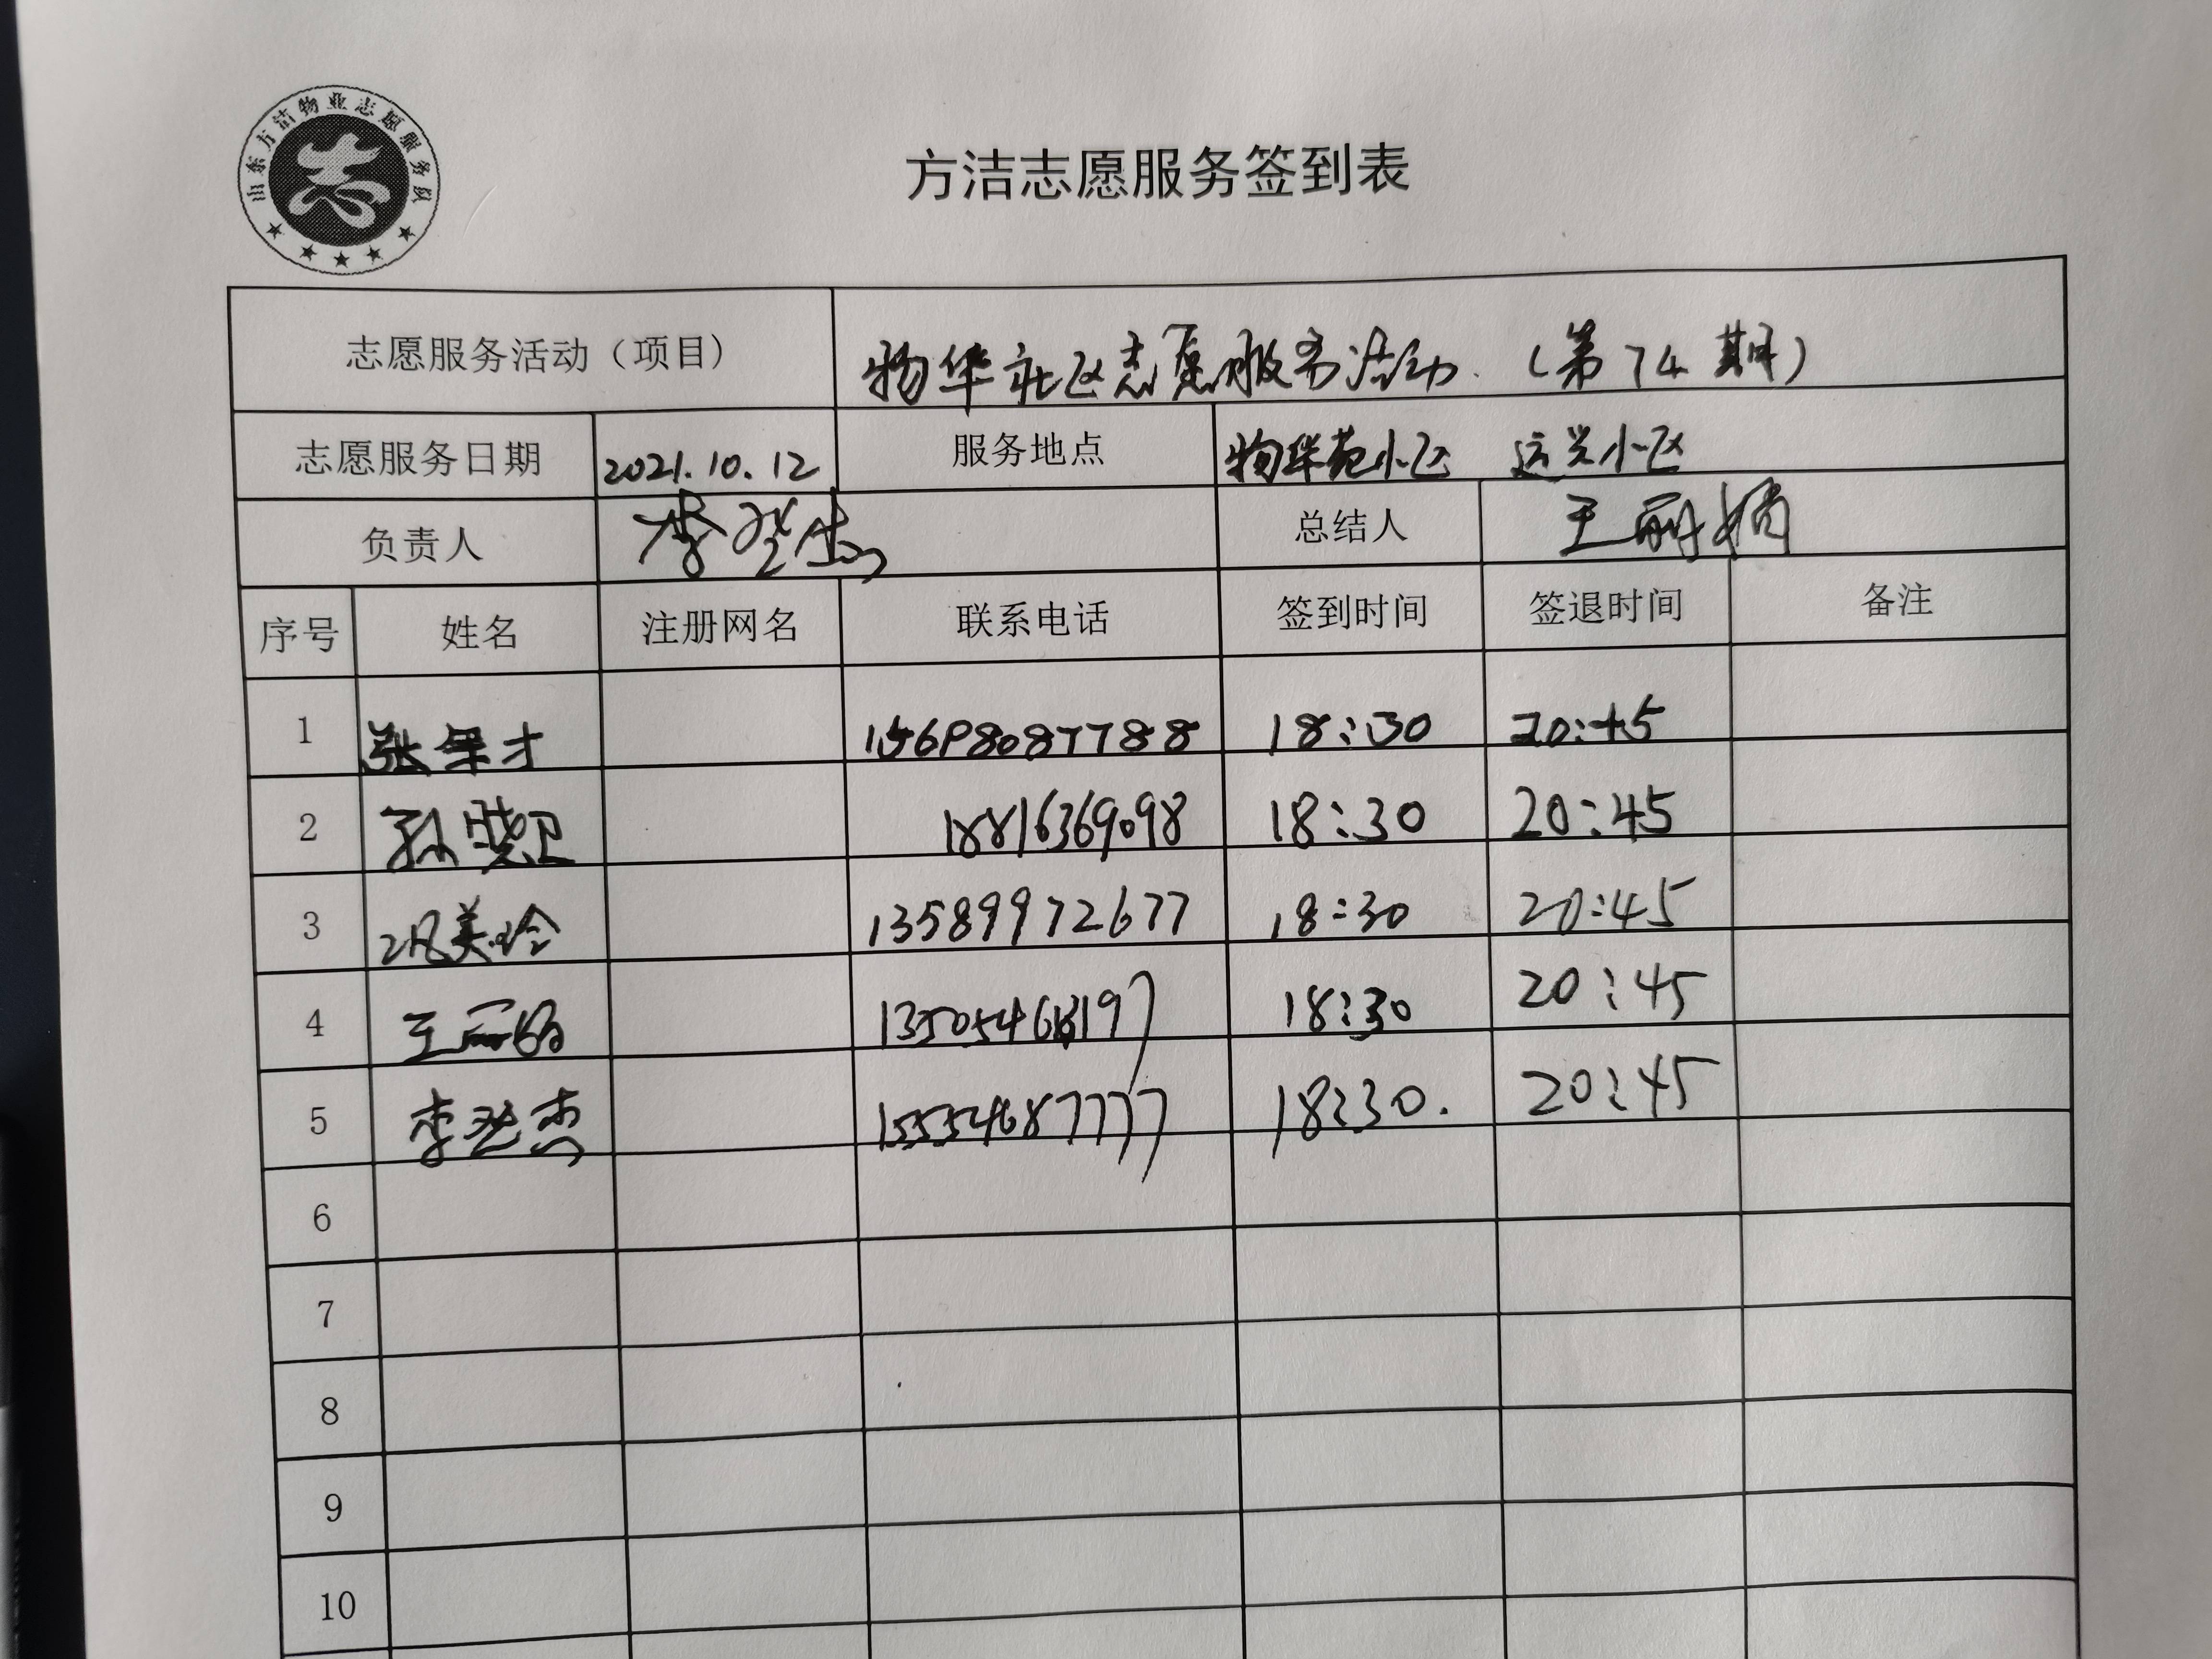 山东方洁物业志愿服务队
志
方洁志愿服务签到表
志愿服务活动（项目） 物华社区志愿服务活动.（第74期）
志愿服务日期 2021.10.12 服务地点 物华苑小区 运兴小区
负责人 李 总结人 王丽娟
序号 姓名 注册网名 联系电话 签到时间 签退时间 备注
1 张 才 15698087788 18:30 20:45
2 孙晓卫 18816369098 18:30 20:45
3 美玲 13589972677 18:30 20:45
4 王丽娟 18:30 20:45
5 李 杰 15554687777 18:30. 20:45
6
7
8
9
10